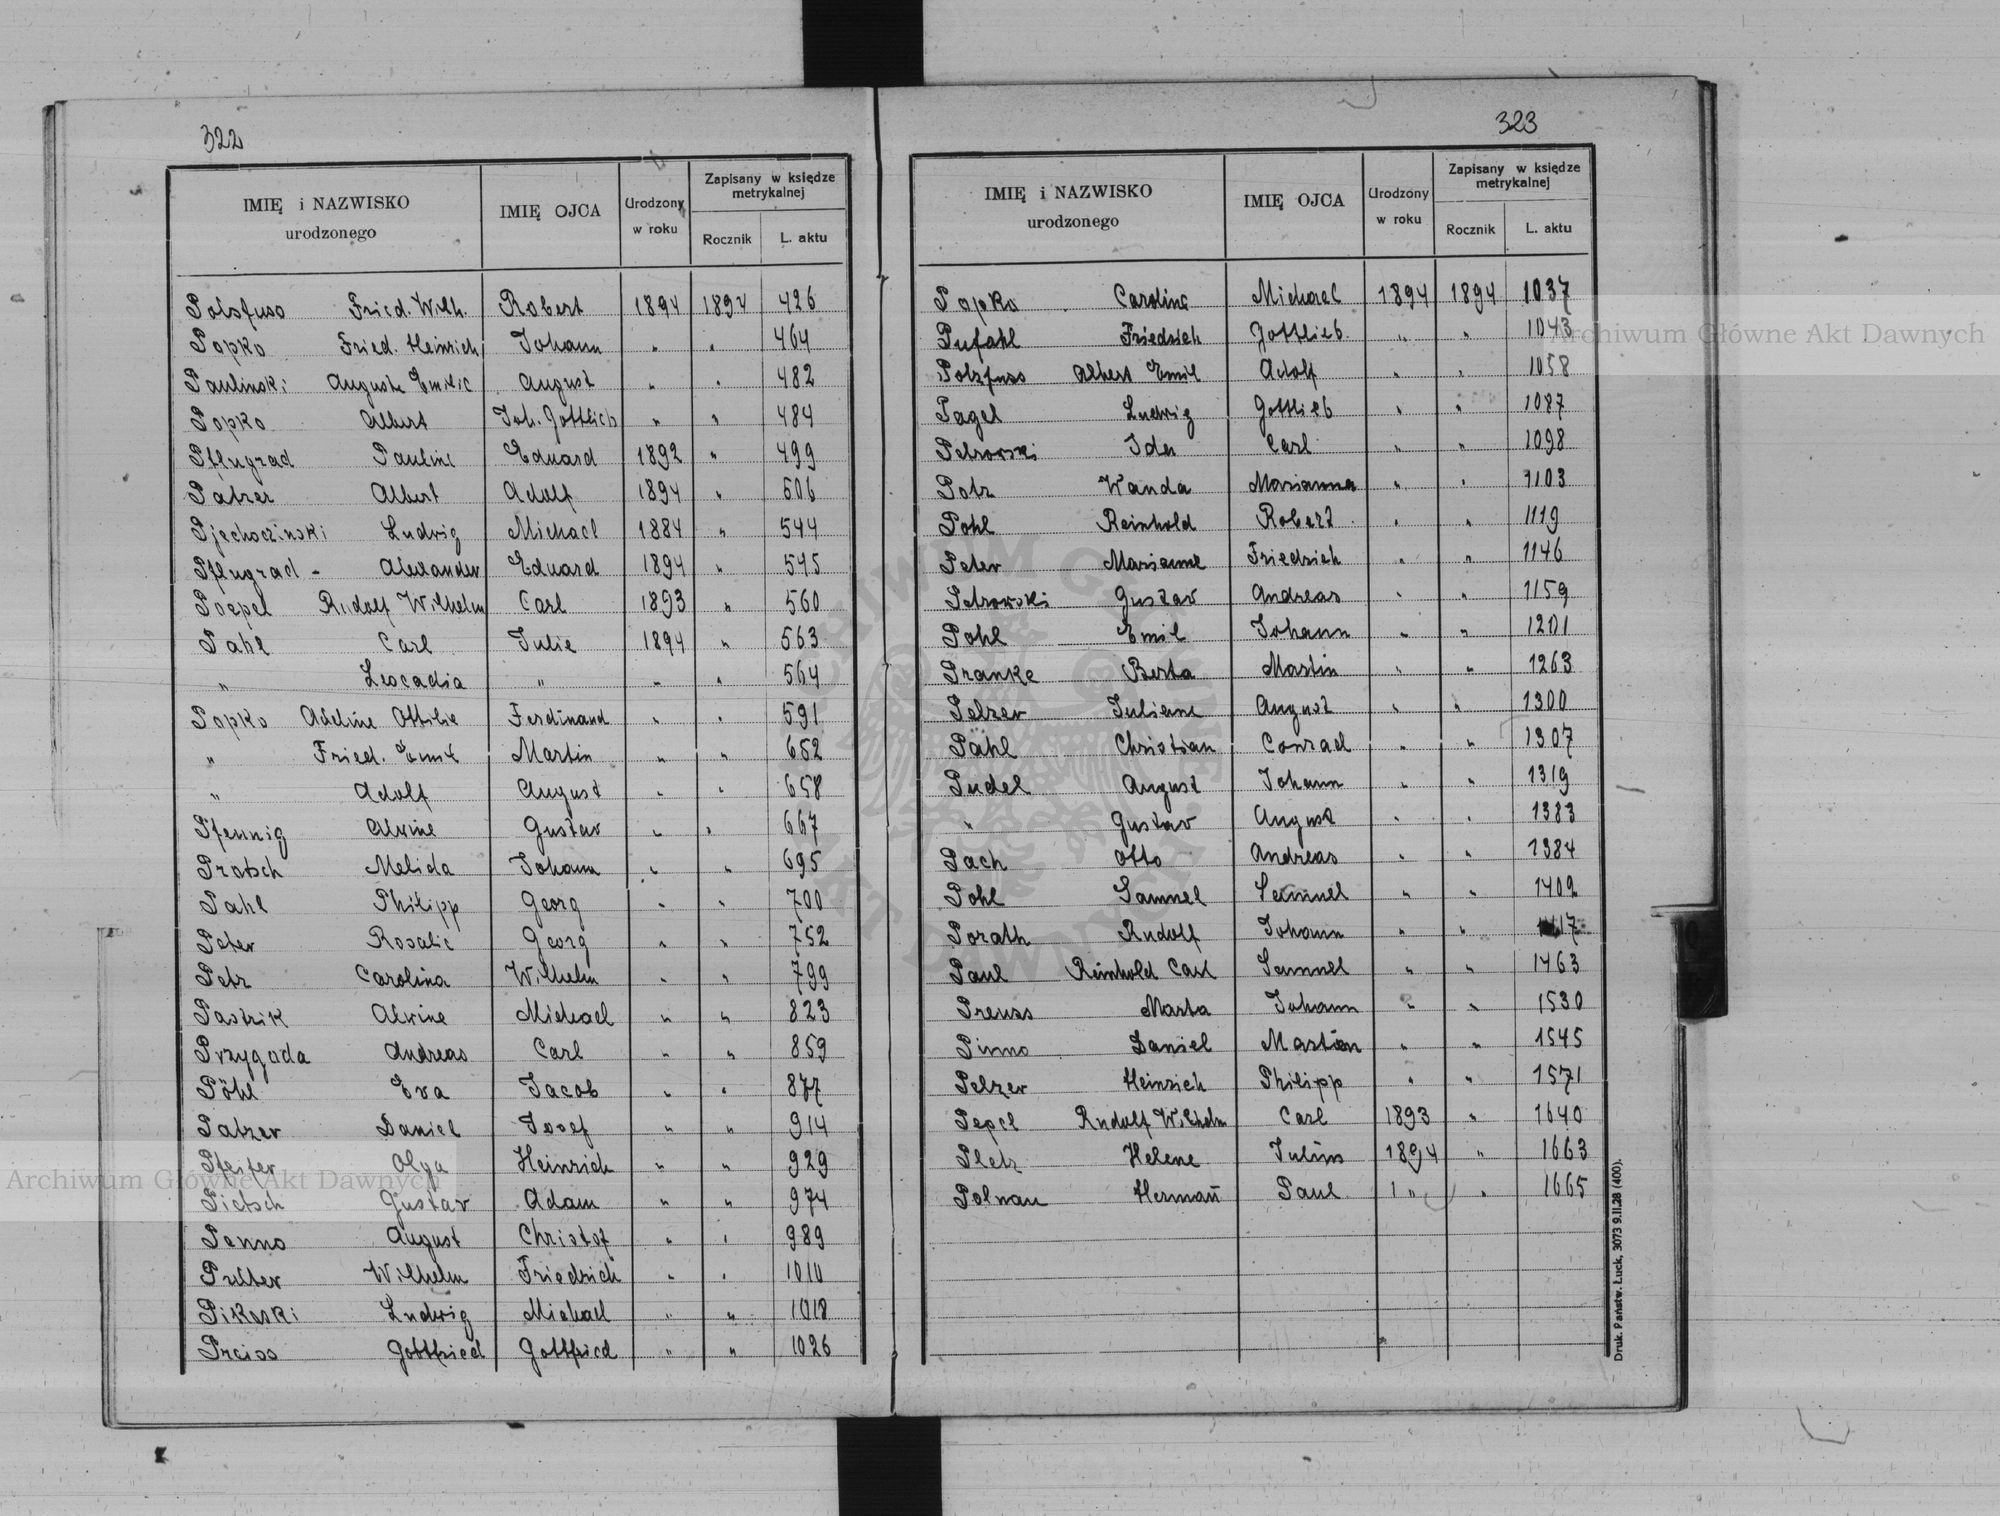 322
IMIĘ i NAZWISKO urodzonego IMIĘ OJCA Urodzony w roku Zapisany w księdze metrykalnej Rocznik L. aktu
Polsfuso Fried. Wilh. Robert 1894 1894 426
Popko Fried. Heinrich Johann " " 464
Paulinski Auguste Emilie August " " 482
Popko Albert Joh. Gottlieb " " 484
Pflugrad Pauline Eduard 1892 " 499
Patzer Albert Adolf 1894 " 506
Pjechoczinski Ludwig Michael 1884 " 544
Pflugrad - Alexander Eduard 1894 " 545
Poepel Rudolf Wilhelm Carl 1893 " 560
Pahl Carl Julie 1894 " 563
" Leocadia " " " 564
Popko Adeline Ottilie Ferdinand " " 591
" Fried. Emil Martin " " 652
" Adolf August " " 658
Pfennig Alvine Gustav " " 667
Protsch Melida Johann " " 695
Pahl Philipp Georg " " 700
Peter Rosalie Georg " " 752
Petz Carolina Wilhelm " " 799
Pastrik Alvine Michael " " 823
Przygoda Andreas Carl " " 859
Pöhl Eva Jacob " " 877
Patzer Daniel Josef " " 914
Pfeifer Olga Heinrich " " 929
Pietsch Gustav Adam " " 974
Penno August Christof " " 989
Wilhelm Friedrich " " 1010
Pikoski Ludwig Michael " " 1018
Preiss Gottfried Gottfried " " 1026
323
IMIĘ i NAZWISKO urodzonego IMIĘ OJCA Urodzony w roku Zapisany w księdze metrykalnej Rocznik L. aktu
Popko Caroline Michael 1894 1894 1037
Pufahl Friedrich Gottlieb " " 1043
Polzfuss Albert Emil Adolf " " 1058
Pagel Ludwig Gottlieb " " 1087
Petrowski Ida Carl " " 1098
Potz Wanda Marianna " " 1103
Pohl Reinhold Robert " " 1119
Peter Marianne Friedrich " " 1146
Petrowski Gustav Andreas " " 1159
Pohl Emil Johann " " 1201
Pranke Berta Martin " " 1263
Pelzer Juliane August " " 1300
Pahl Christian Conrad " " 1307
Pudel August Johann " " 1319
" Gustav August " " 1383
Pach Otto Andreas " " 1384
Pohl Samuel Samuel " " 1402
Porath Rudolf Johann " "
Paul Reinhold Carl Samuel " " 1463
Preuss Marta Johann " " 1530
Pinno Daniel Martin " " 1545
Pelzer Heinrich Philipp " " 1571
Pepel Rudolf Wilhelm Carl 1893 " 1640
Pletz Helene Julius 1894 " 1663
Polnau Hermañ Paul " " 1665
Druk. Państw. Łuck, 3073 9.II.28 (400).
Archiwum Główne Akt Dawnych
Archiwum Główne Akt Dawnych